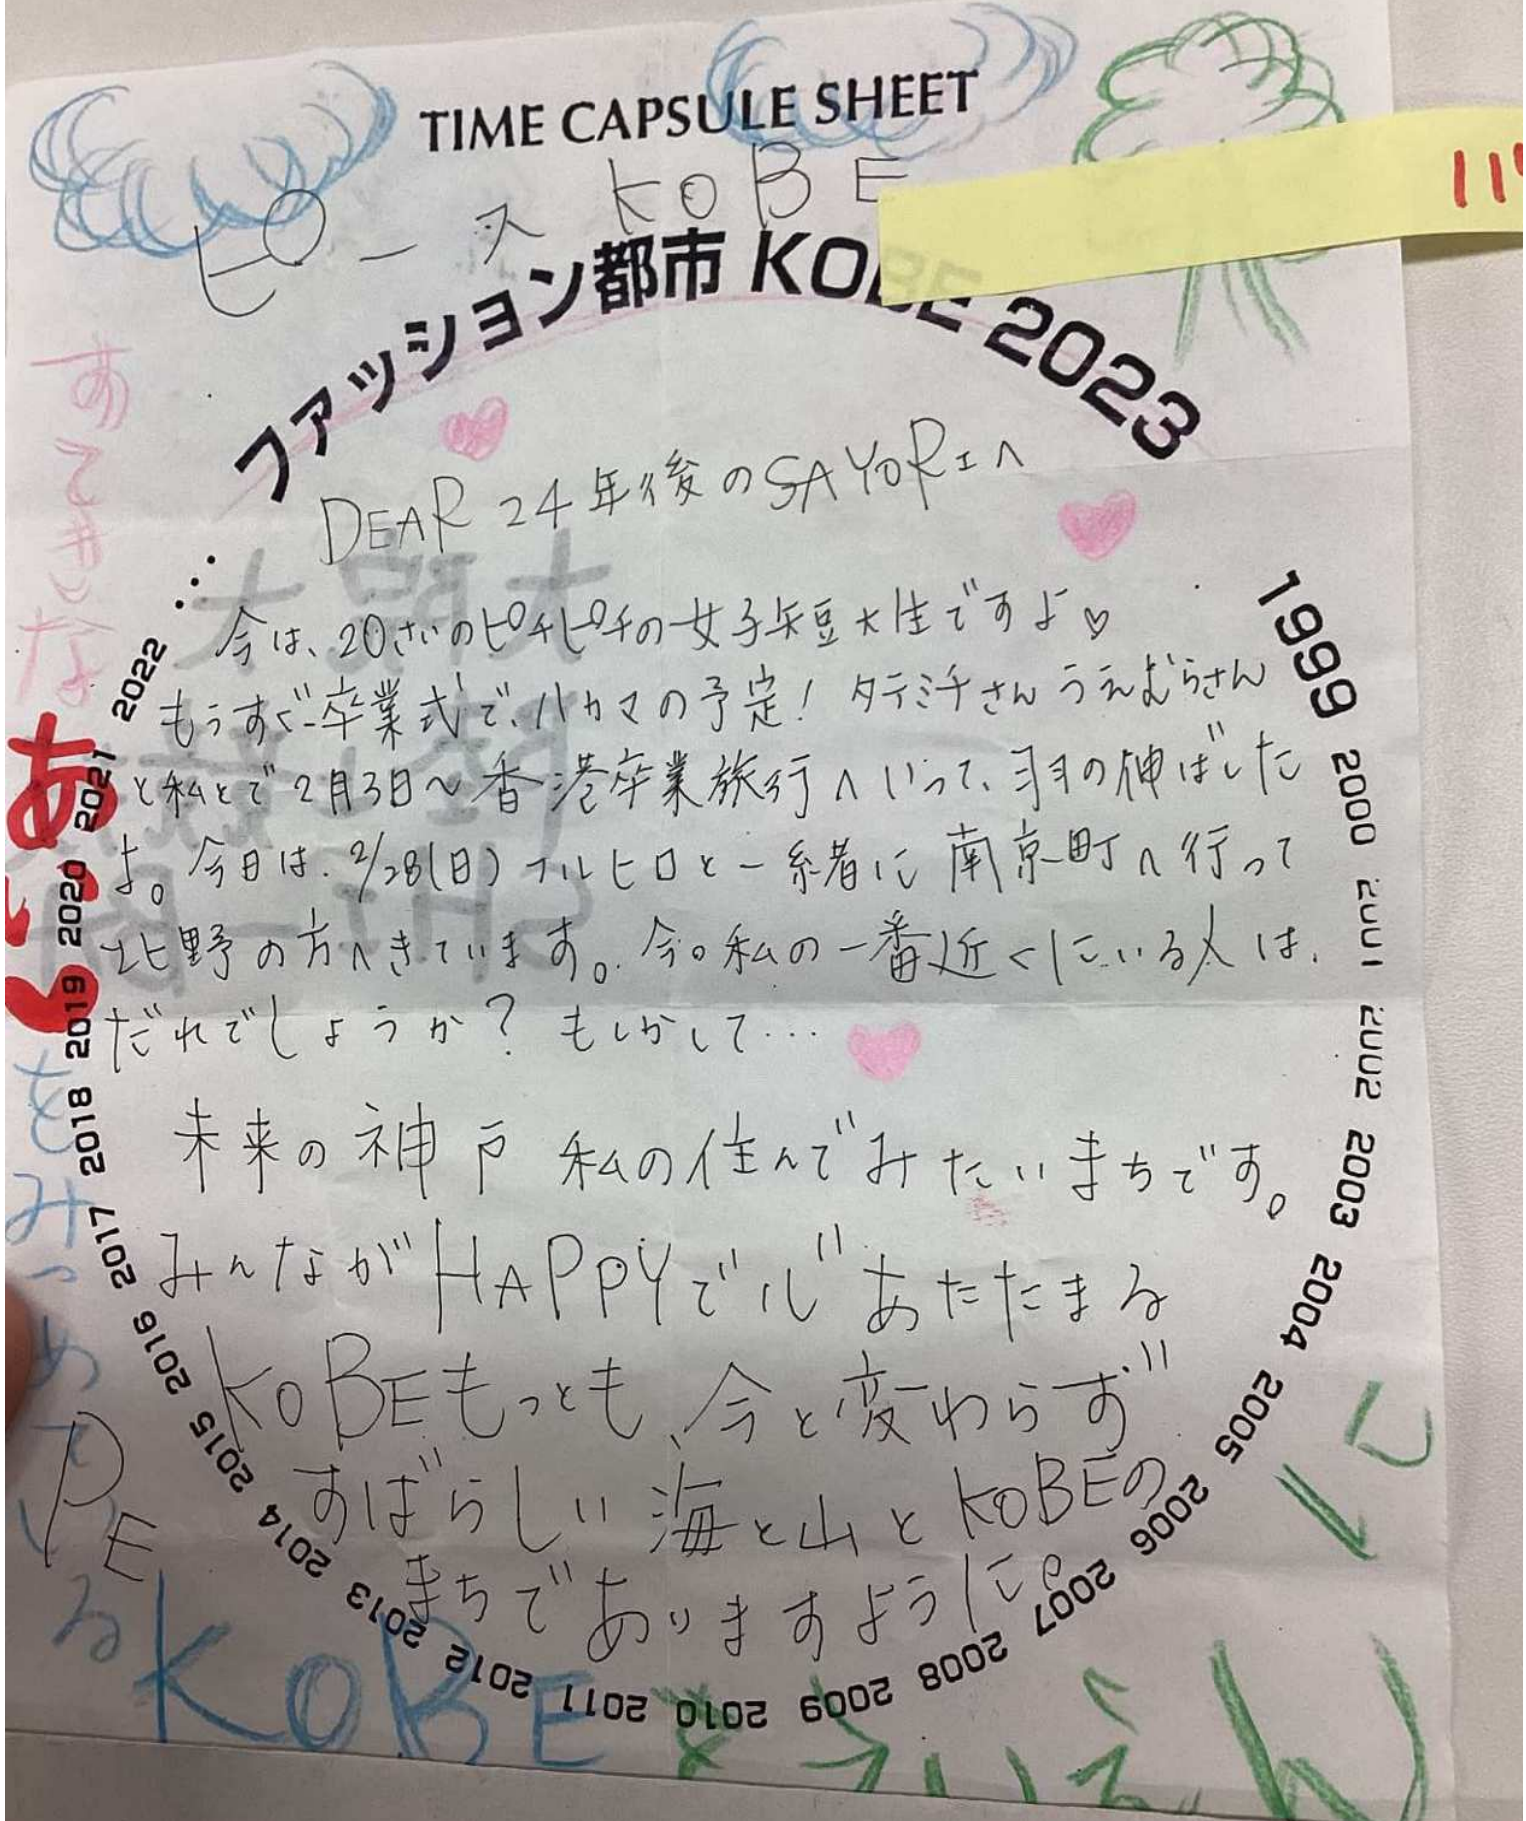 TIME CAPSULE SHEET
ピース KOBE
ファッション都市 KOBE 2023
DEAR 24年後のSAYORIへ
今は、20さいのピチピチの女子短大生ですよ♡
もうすぐ卒業式で、ハカマの予定! タテミチさん うえむらさん
と私とで2月3日〜香港卒業旅行へいって、羽の伸ばした
よ。今日は、2/28(日) フルヒロと一緒に 南京町へ行って
北野の方へきています。今。私の一番近くにいる人は、
だれでしょうか? もしかして…
未来の神戸 私の住んでみたいまちです。
みんながHAPPYで心あたたまる
KOBEもっとも、今と変わらず
すばらしい海と山とKOBEの
まちでありますように。
1999 2000 2001 2002 2003 2004 2005 2006 2007 2008 2009 2010 2011 2012 2013 2014 2015 2016 2017 2018 2019 2020 2021 2022 …
すてきな
あい
をみつめてる
KOBE
PE